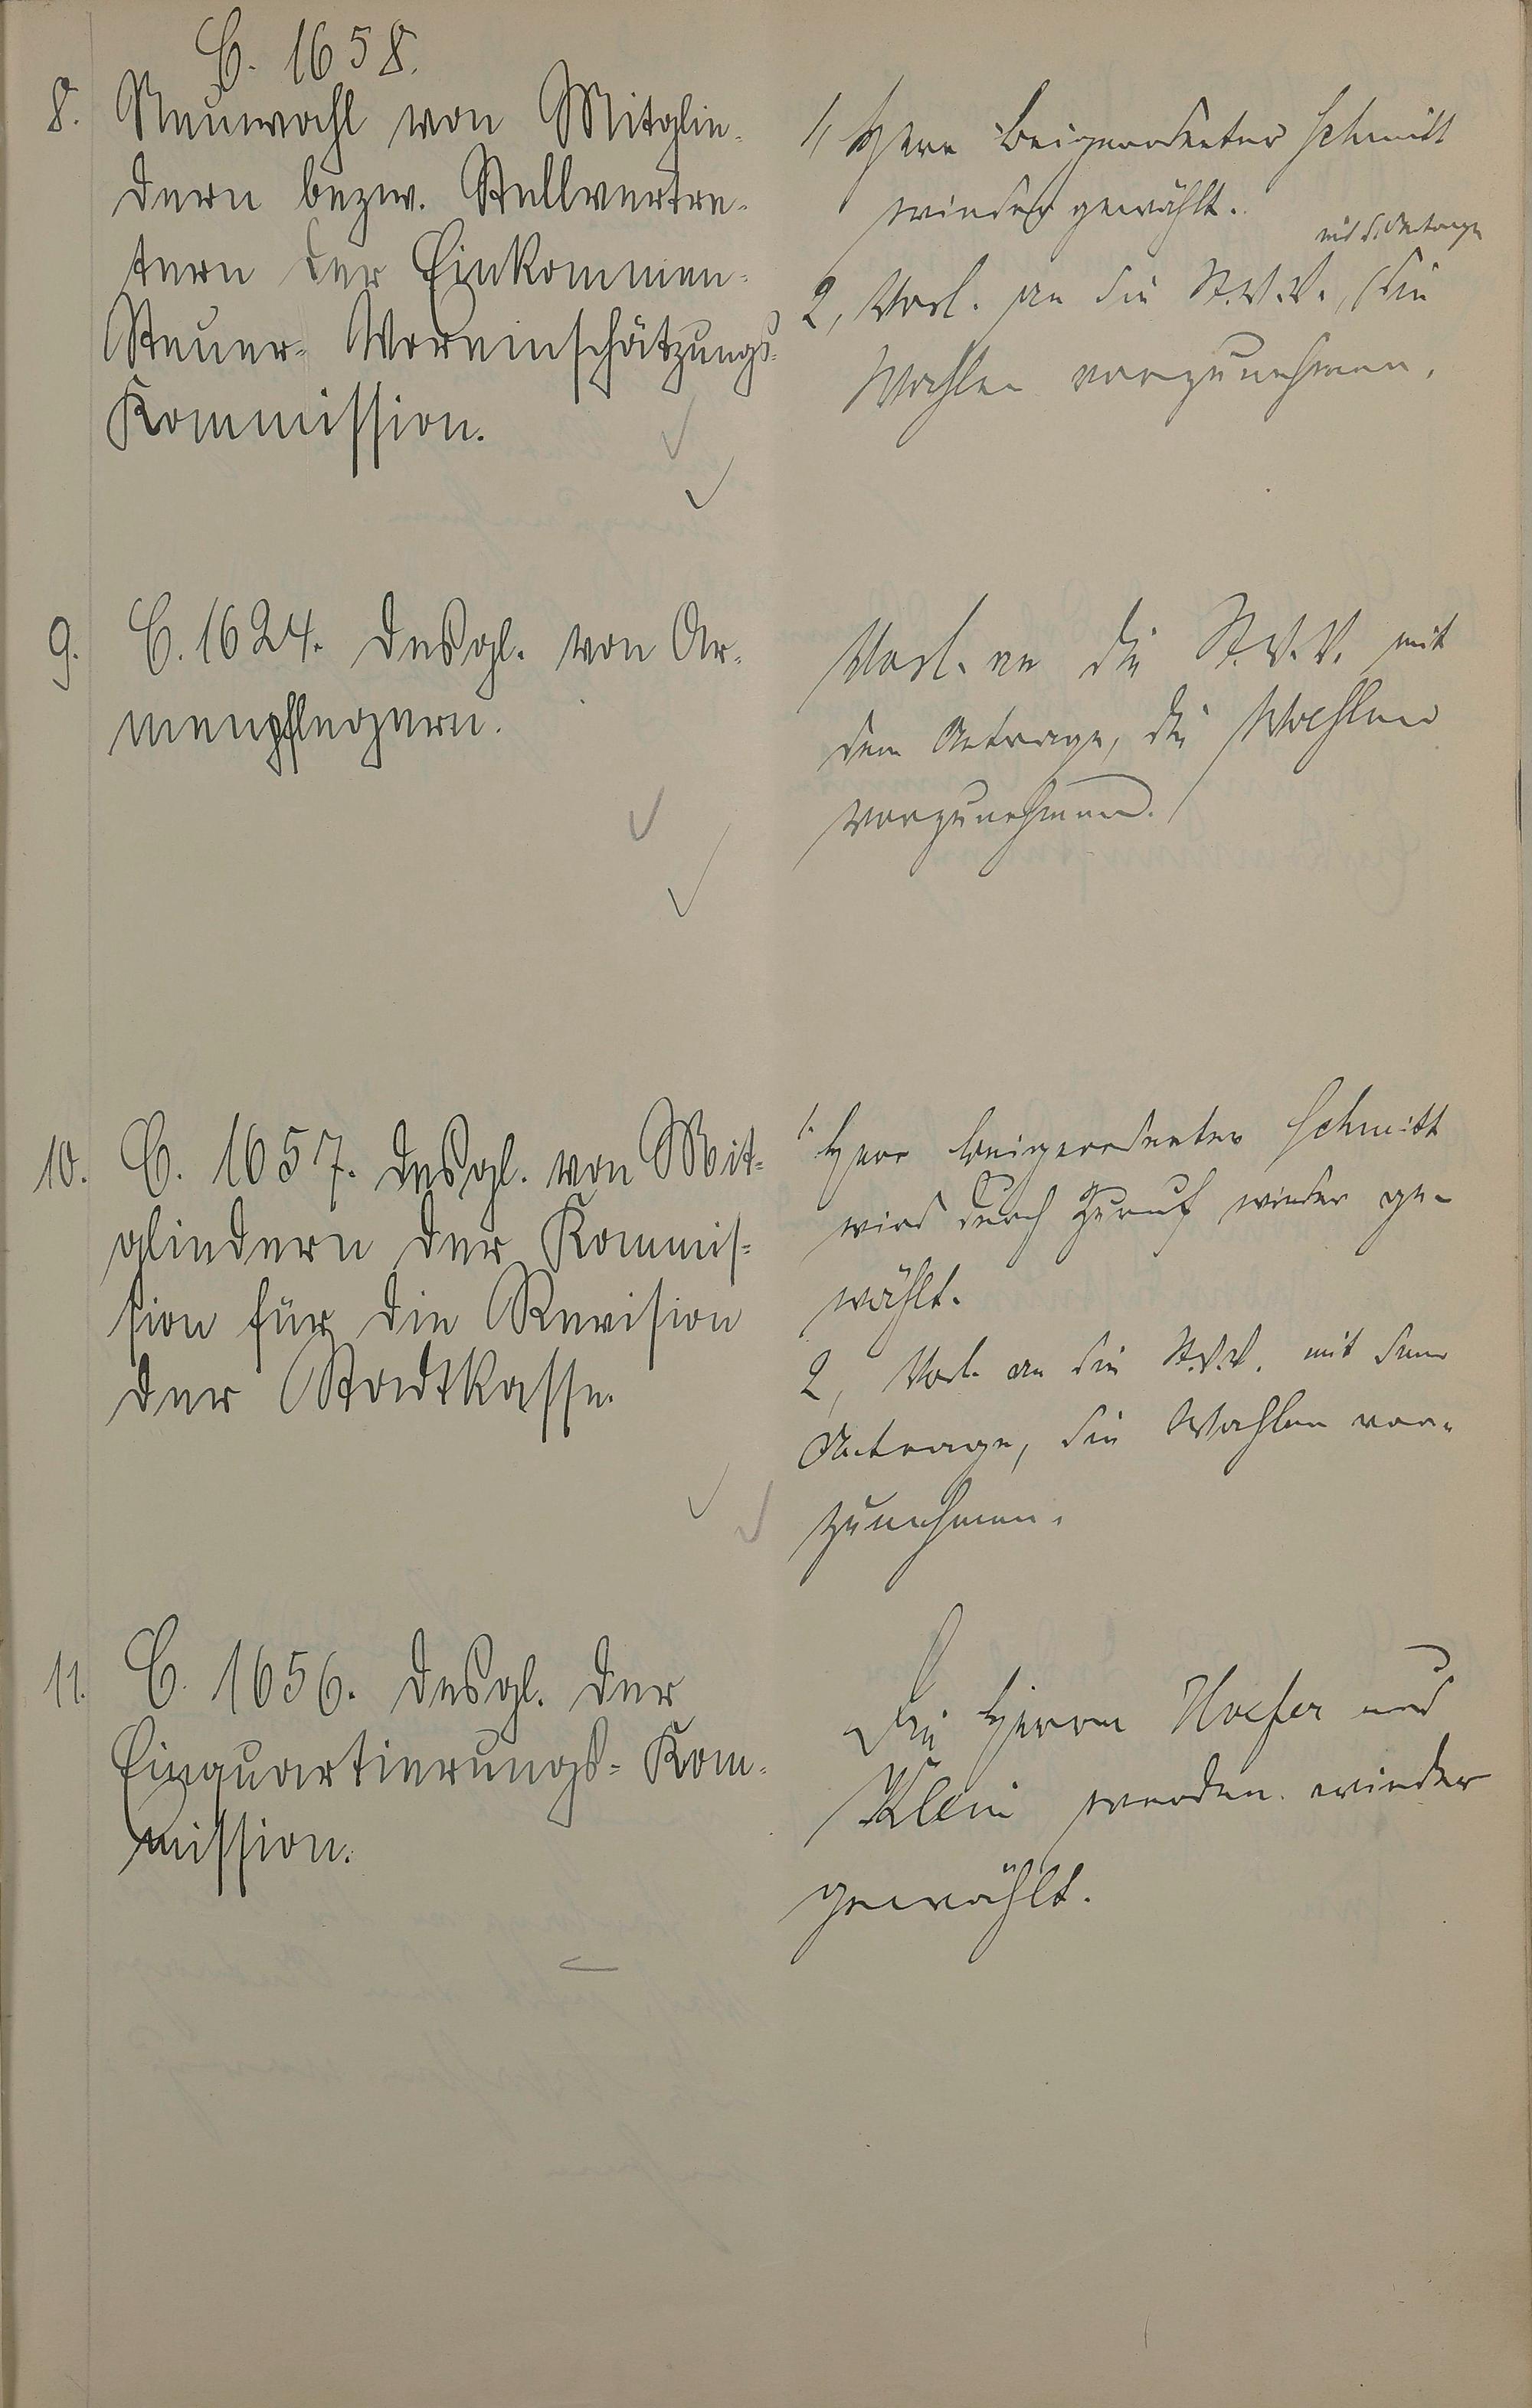 C. 1658.
8. Neuwahl von Mitglie-
dern bezw. Stellvertre-
tern der Einkommen-
Steuer- Voreinschätzungs-
Kommission.
1, Herr Beigeordneter Schmitt
wieder gewählt.
mit d. Antrage
2, Vorl. an die St.V.V., die
Wahlen vorzunehmen.
9. C. 1624. Desgl. von Ar-
menpflegern.
Vorl. an die St.V.V. mit
dem Antrage, die Wahlen
vorzunehmen.
10. C. 1657. Desgl. von Mit-
gliedern der Kommis-
sion für die Revision
der Stadtkasse.
1. Herr Beigeordneter Schmitt
wird durch Zuruf wieder ge-
wählt.
2, Vorl. an die St.V.V. mit dem
Antrage, die Wahlen vor-
zunehmen.
11. C. 1656. Desgl. der
Einquartierungs- Kom-
mission.
Die Herren Hoefer und
Klein werden wieder
gewählt.